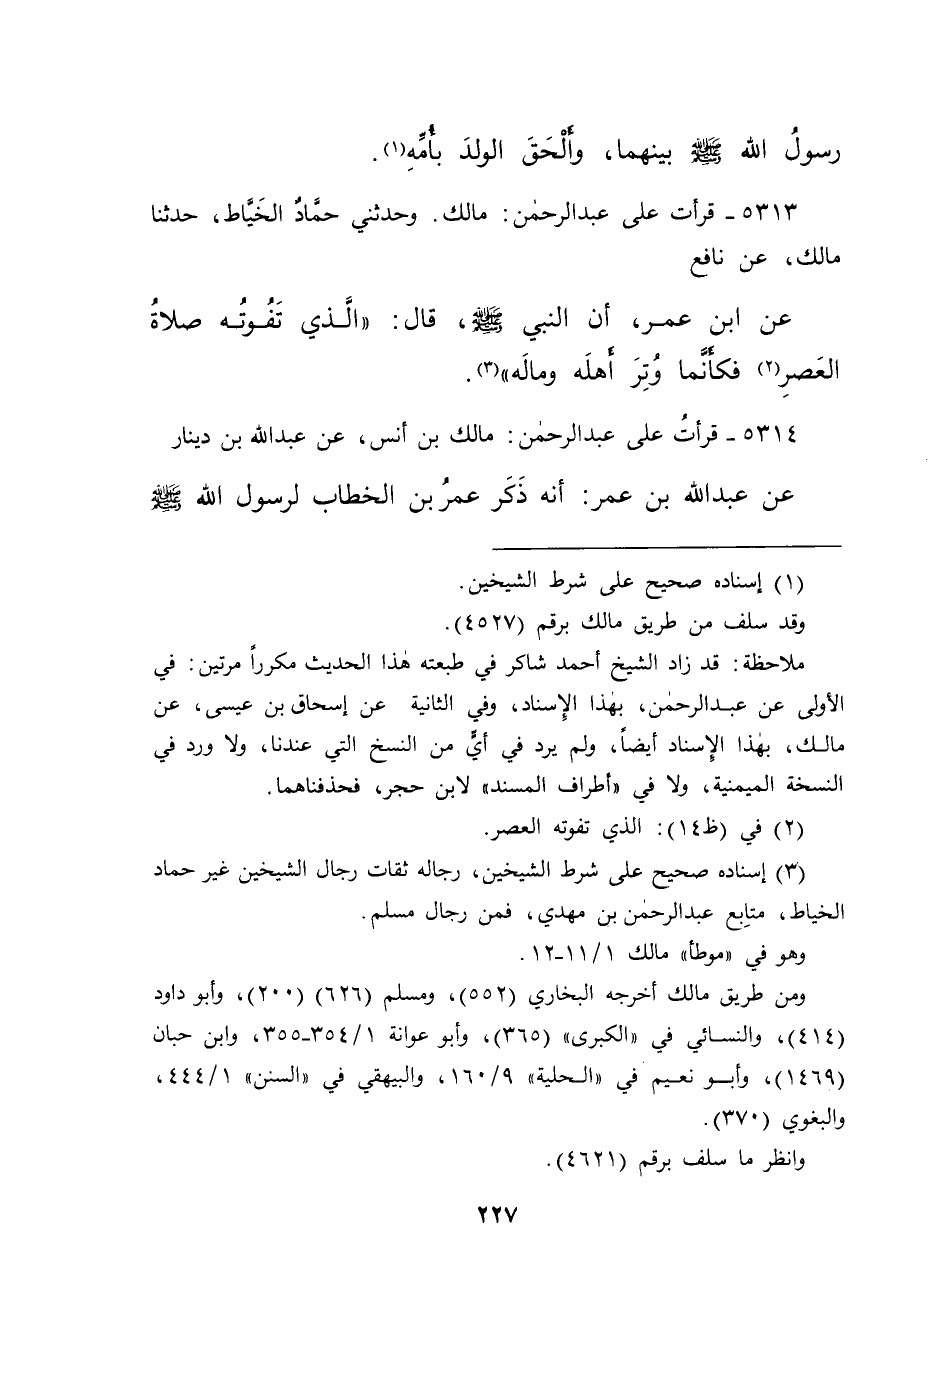 رسولُ الله ﷺ بينهما، وأَلْحَقَ الولدَ بأُمِّهِ(١).
٥٣١٣ ـ قرأت على عبدالرحمٰن: مالك. وحدثني حمَّادٌ الخَيَّاط، حدثنا
مالك، عن نافع
عن ابن عمـر، أن النبي ﷺ، قال: «الَّـذي تَفُـوتُـه صلاةُ
العَصرِ(٢) فكأَنَّما وُتِرَ أَهلَه ومالَه»(٣).
٥٣١٤ ـ قرأتُ على عبدالرحمٰن: مالك بن أنس، عن عبدالله بن دينار
عن عبدالله بن عمر: أنه ذَكَر عمرُ بن الخطاب لرسول الله ﷺ
(١) إسناده صحيح على شرط الشيخين.
وقد سلف من طريق مالك برقم (٤٥٢٧).
ملاحظة: قد زاد الشيخ أحمد شاكر في طبعته هٰذا الحديث مكرراً مرتين: في
الأولى عن عبـدالرحمٰن، بهٰذا الإِسناد، وفي الثانية عن إسحاق بن عيسى، عن
مالـك، بهٰذا الإِسناد أيضاً، ولم يرد في أيٍّ من النسخ التي عندنا، ولا ورد في
النسخة الميمنية، ولا في «أطراف المسند» لابن حجر، فحذفناهما.
(٢) في (ظ١٤): الذي تفوته العصر.
(٣) إسناده صحيح على شرط الشيخين، رجاله ثقات رجال الشيخين غير حماد
الخياط، متابِع عبدالرحمٰن بن مهدي، فمن رجال مسلم.
وهو في «موطأ» مالك ١١/١ـ١٢.
ومن طريق مالك أخرجه البخاري (٥٥٢)، ومسلم (٦٢٦) (٢٠٠)، وأبو داود
(٤١٤)، والنسـائي في «الكبرى» (٣٦٥)، وأبو عوانة ٣٥٤/١ـ٣٥٥، وابن حبان
(١٤٦٩)، وأبـو نعـيم في «الـحلية» ١٦٠/٩، والبيهقي في «السنن» ٤٤٤/١،
والبغوي (٣٧٠).
وانظر ما سلف برقم (٤٦٢١).
٢٢٧